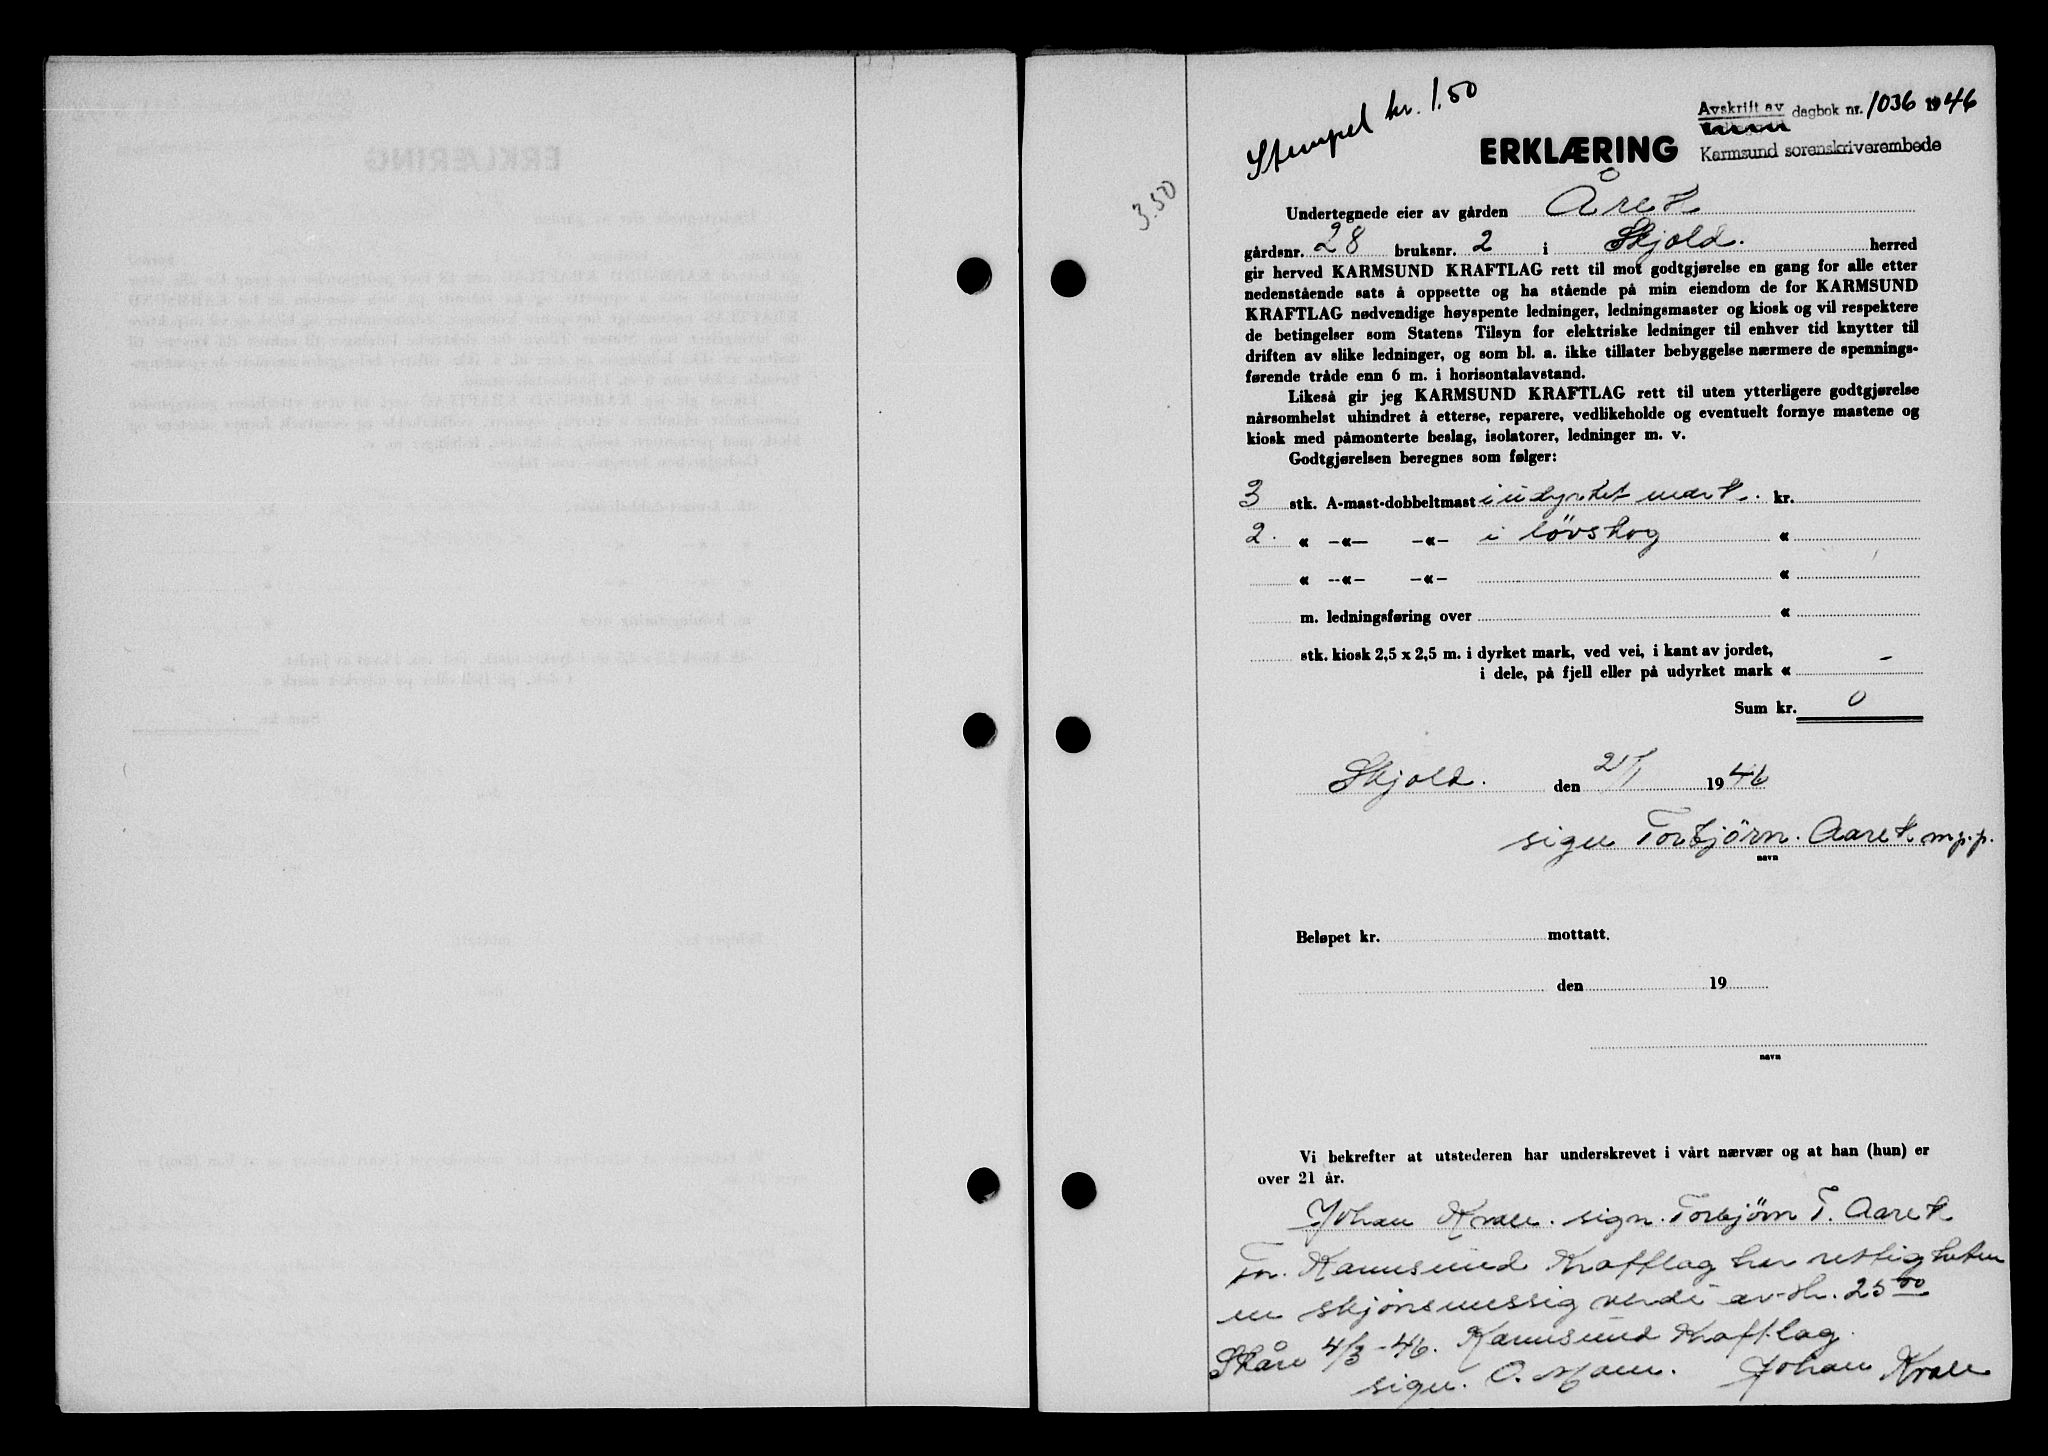 Stempel kr. 1.50
3.50
Avskrift av dagbok nr. 1036 1946
Karmsund sorenskriverembede
ERKLÆRING
Undertegnede eier av gården Årek
gårdsnr. 28 bruksnr. 2 i Skjold. herred
gir herved KARMSUND KRAFTLAG rett til mot godtgjørelse en gang for alle etter
nedenstående sats å oppsette og ha stående på min eiendom de for KARMSUND
KRAFTLAG nødvendige høyspente ledninger, ledningsmaster og kiosk og vil respektere
de betingelser som Statens Tilsyn for elektriske ledninger til enhver tid knytter til
driften av slike ledninger, og som bl. a. ikke tillater bebyggelse nærmere de spennings-
førende tråde enn 6 m. i horisontalavstand.
Likeså gir jeg KARMSUND KRAFTLAG rett til uten ytterligere godtgjørelse
nårsomhelst uhindret å etterse, reparere, vedlikeholde og eventuelt fornye mastene og
kiosk med påmonterte beslag, isolatorer, ledninger m. v.
Godtgjørelsen beregnes som følger:
3 stk. A-mast-dobbeltmast i udyrket mark. kr.
2. « —«— —«— i løvskog «
« —«— —«— «
m. ledningsføring over «
stk. kiosk 2,5 x 2,5 m. i dyrket mark, ved vei, i kant av jordet,
i dele, på fjell eller på udyrket mark « -
Sum kr. 0
Skjold. den 21/1 1946
sign Torbjörn. Aarek m.p.p.
navn
Beløpet kr. mottatt.
den 19
navn
Vi bekrefter at utstederen har underskrevet i vårt nærvær og at han (hun) er
over 21 år.
Johan sign. Torbjörn T. Aarek
For. Karmsund Kraftlag har rettigheten
en skjönsmessig verdi av kr. 25 00
Skåre 4/3-46. Karmsund Kraftlag.
sign. O. Johan